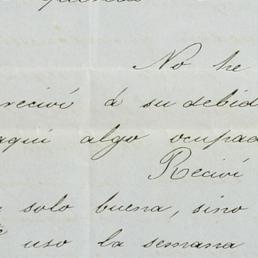 No he
recivi á su debid
aqui algo ocupad
Recivi
solo buena, sino
uso la semana